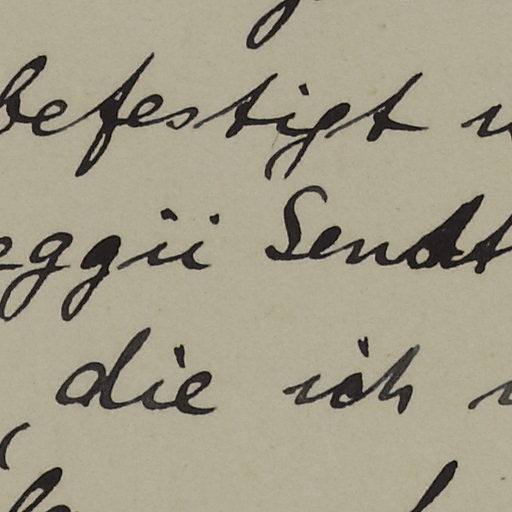 befestigt
eggii Sendt
die ich